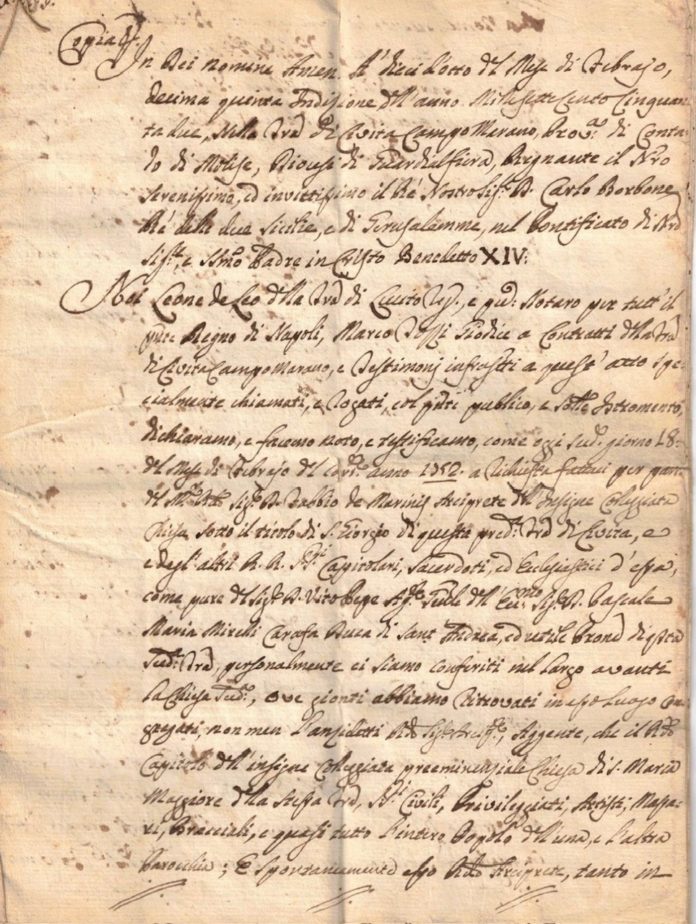 Copia &.
In Dei nomine Amen. A' dieci dotto del Mese di Febrajo,
decima quinta Indizione dell'anno Millesettecento Cinquan
ta due, nella Trã di Civita Campo Marano, Prov.ª di Conta
do di Molise, Diocesi di Guardialfiera, Regnante il Nro
Serenissimo, ed invittissimo il Rè Nostro Sig.r D. Carlo Borbone
Rè delle due Sicilie, e di Gerusalemme, nel Pontificato di Nro
Sig.re, e Ssmo Padre in Cristo Benedetto XIV:
Noi Leone de Leo della Trã di Lucito Reg.o, e pub.o Notaro per tutt'il
pnte Regno di Napoli, Marco Giudice a Contratti della Trã
di Civita Campo Marano, e Testimonj infratti a quest'atto spe
cialmente chiamati, e Rogati, col pnte publico, e Istromento,
dichiaramo, e facemo noto, e testificamo, come oggi sud.o giorno 18.
del Mese di Febrajo del cor.te anno 1752. a Richiesta fattaci per parte
del Sig.r D. Fabbio de Marinis Arciprete dell'Insigne Colleggiata
Chiesa sotto il titolo di S. Giorgio di questa pred.a Trã di Civita, e
e degl'altri R. R. Capitolari, Sacerdoti, ed Eclesiastici d'essa;
come pure del Sig.r D. Vito Pepe Ag.te Gñle dell'Ecc.mo Sig.r D. Pascale
Maria Mirelli Carafa Duca di Sant'Andrea, ed utile Prone di questa
sud.a Trã, personalmente ci siamo conferiti nel largo avanti
la Chiesa sud.a, ove gionti abbiamo ritrovati in esso luogo con
gregati non men l'anzidetti Rdo Sig.r Arcip.te, Aggente, che il Rdo
Capitolo dell'insigne Colleggiata preeminenziale Chiesa di S. Maria
Maggiore della stessa Trã, Civili, Privileggiati, Artisti, Massa
ri, Bracciali, e quasi tutto l'intero Popolo dell'una, e l'altra
Parocchia; E spontaneamente esso Rdo Arciprete, tanto in